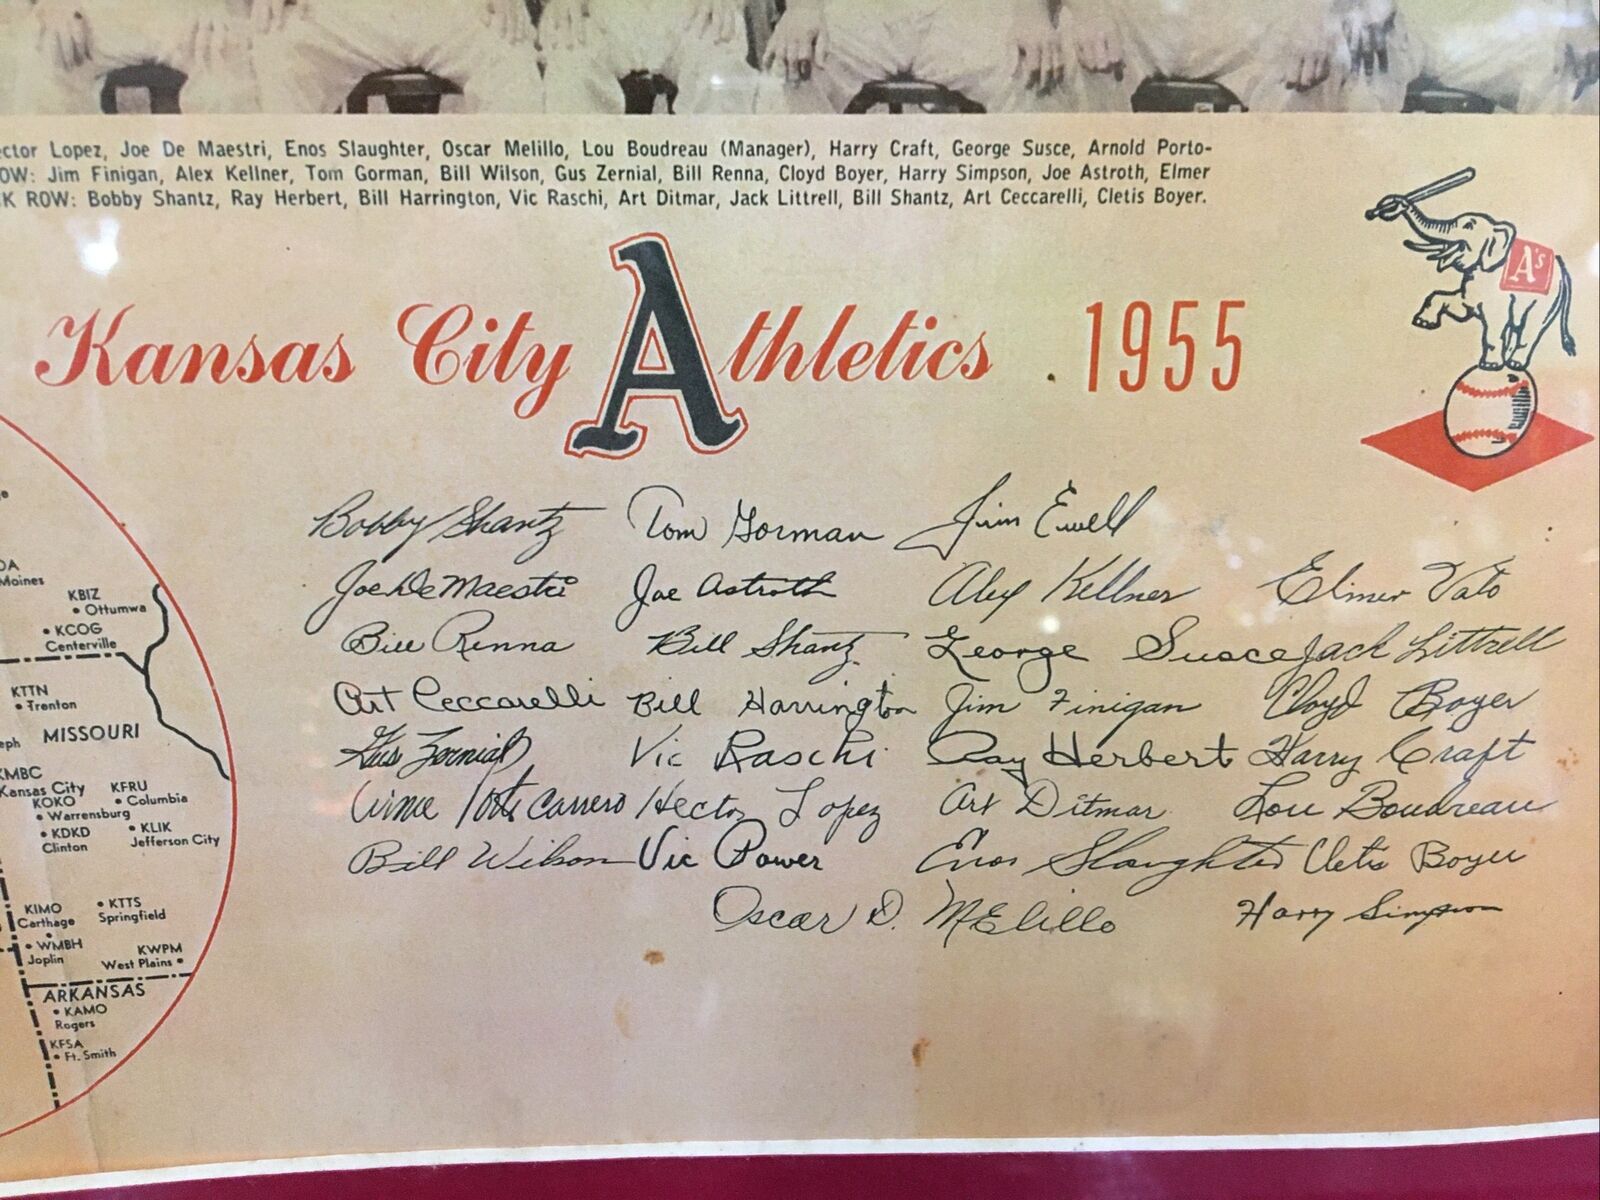 ector Lopez, Joe De Maestri, Enos Slaughter, Oscar Melillo, Lou Boudreau (Manager), Harry Craft, George Susce, Arnold Porto-
OW: Jim Finigan, Alex Kellner, Tom Gorman, Bill Wilson, Gus Zernial, Bill Renna, Cloyd Boyer, Harry Simpson, Joe Astroth, Elmer
K ROW: Bobby Shantz, Ray Herbert, Bill Harrington, Vic Raschi, Art Ditmar, Jack Littrell, Bill Shantz, Art Ceccarelli, Cletis Boyer.
A's
Kansas City Athletics 1955
Bobby Shantz Tom Gorman Jim Ewell
Joe De Maestri Joe Astroth Alex Kellner Elmer Valo
Bill Renna Bill Shantz George Susce Jack Littrell
Art Ceccarelli Bill Harrington Jim Finigan Cloyd Boyer
Gus Zernial Vic Raschi Ray Herbert Harry Craft
Arnie Portocarrero Hector Lopez Art Ditmar Lou Boudreau
Bill Wilson Vic Power Enos Slaughter Cletis Boyer
Oscar D. Melillo Harry Simpson
Moines
KBIZ
Ottumwa
KCOG
Centerville
KTTN
Trenton
MISSOURI
eph
KMBC
Kansas City
KFRU
Columbia
KOKO
Warrensburg
KDKD
Clinton
KLIK
Jefferson City
KIMO
Carthage
KTTS
Springfield
WMBH
Joplin
KWPM
West Plains
ARKANSAS
KAMO
Rogers
KFSA
Ft. Smith